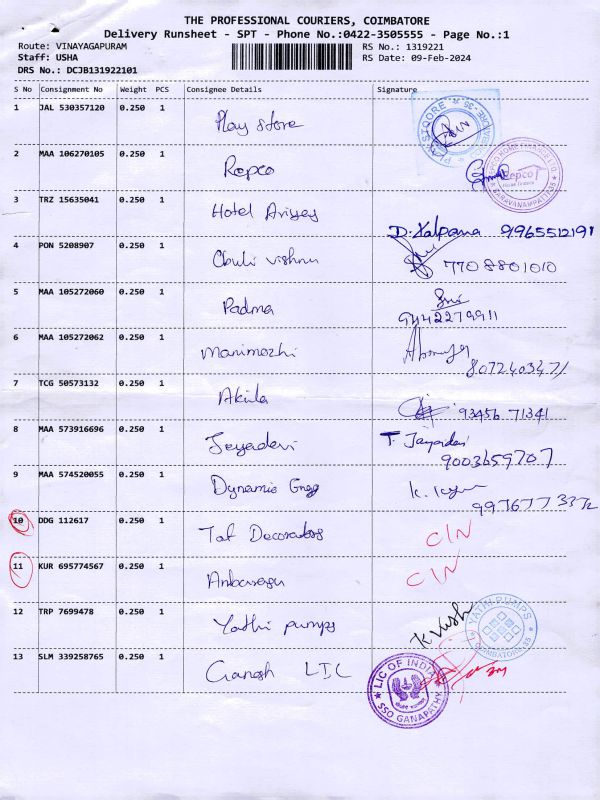 THE PROFESSIONAL COURIERS, COIMBATORE
Delivery Runsheet - SPT - Phone No.:0422-3505555 - Page No.:1
Route: VINAYAGAPURAM RS No.: 1319221
Staff: USHA RS Date: 09-Feb-2024
DRS No.: DCJB131922101
S No Consignment No Weight PCS Consignee Details Signature
1 JAL 530357120 0.250 1 Play store
2 MAA 106270105 0.250 1 Repco
3 TRZ 15635041 0.250 1 Hotel
D. Kalpana 9965512191
4 PON 5208907 0.250 1 Vishnu
7708801010
5 MAA 105272060 0.250 1 Padma
9442279911
6 MAA 105272062 0.250 1 Manimozhi
8072403471
7 TCG 50573132 0.250 1 Akila
93456 71341
8 MAA 573916696 0.250 1 Jeyadevi T. Jayadevi
9003659707
9 MAA 574520055 0.250 1 Dynamic Engg K.
9976773372
10 DDG 112617 0.250 1 Taf Decorators C/N
11 KUR 695774567 0.250 1 C/N
12 TRP 7699478 0.250 1 Yathi pumps
YATHI PUMPS
COIMBATORE-35
13 SLM 339258765 0.250 1 Ganesh LIC
LIC OF INDIA
SSO GANAPATHY